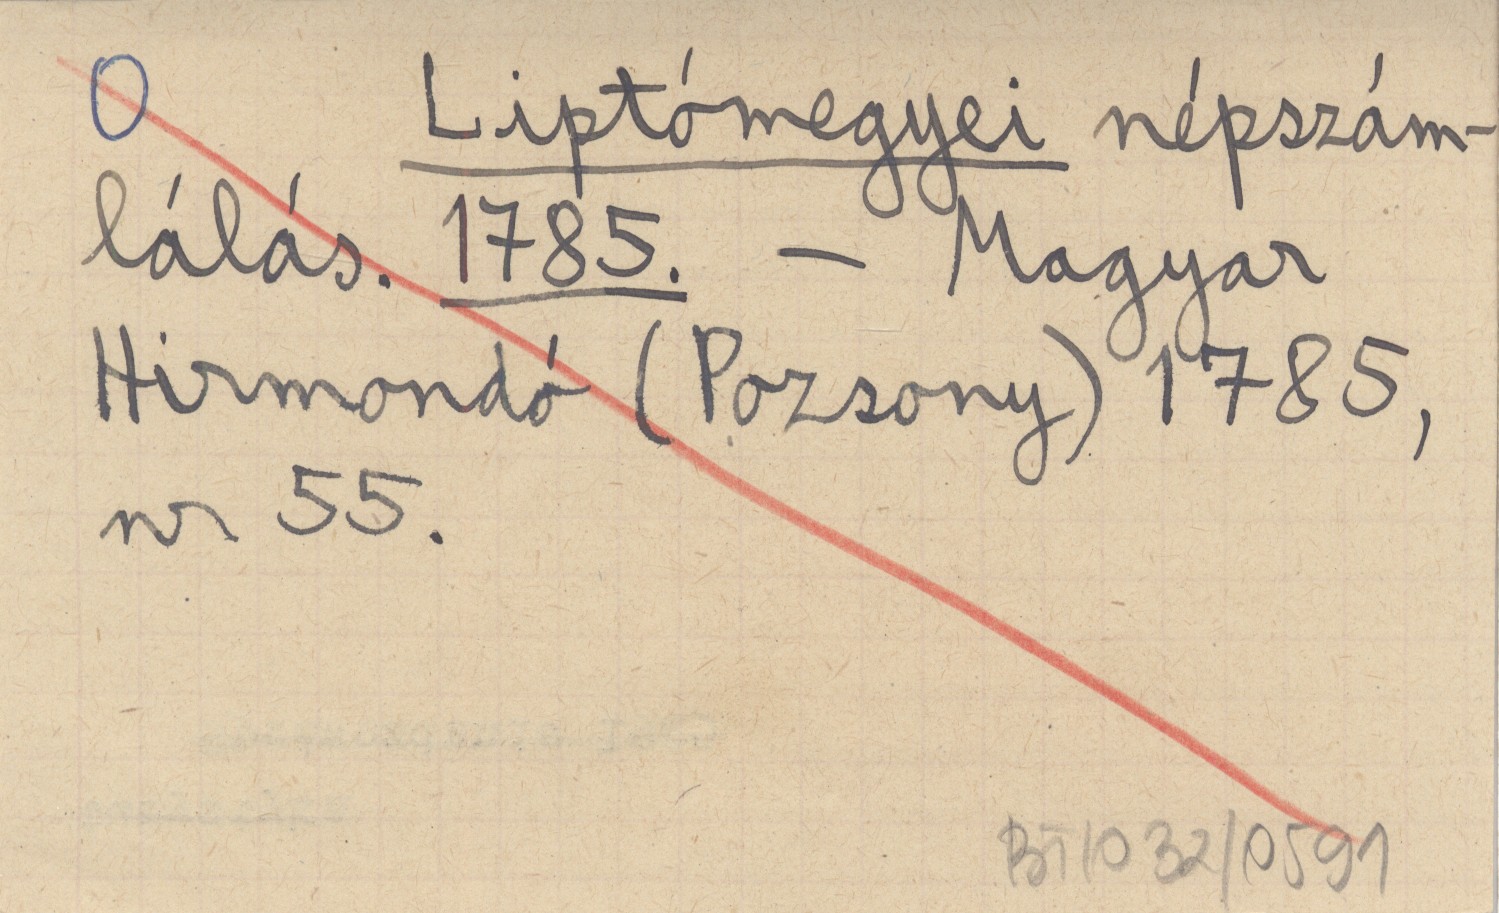 O Liptómegyei népszám-
lálás. 1785. — Magyar
Hirmondó (Pozsony) 1785,
nr 55.
BT/032/0591